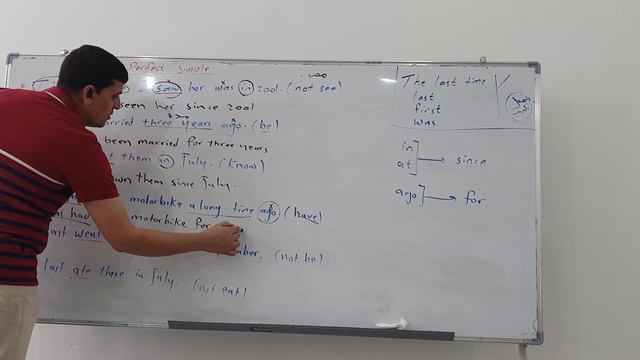 Perfect Simple
saw her was in 2001. (not see)
een her since 2001.
arried three years ago. (be)
been married for three years
them in July. (know)
own them since July.
motorbike along time ago (have)
as had motorbike for
ast went mber. (not be)
last ate there in July. (not eat)
The last time
last
first
was
in
at → since
ago → for